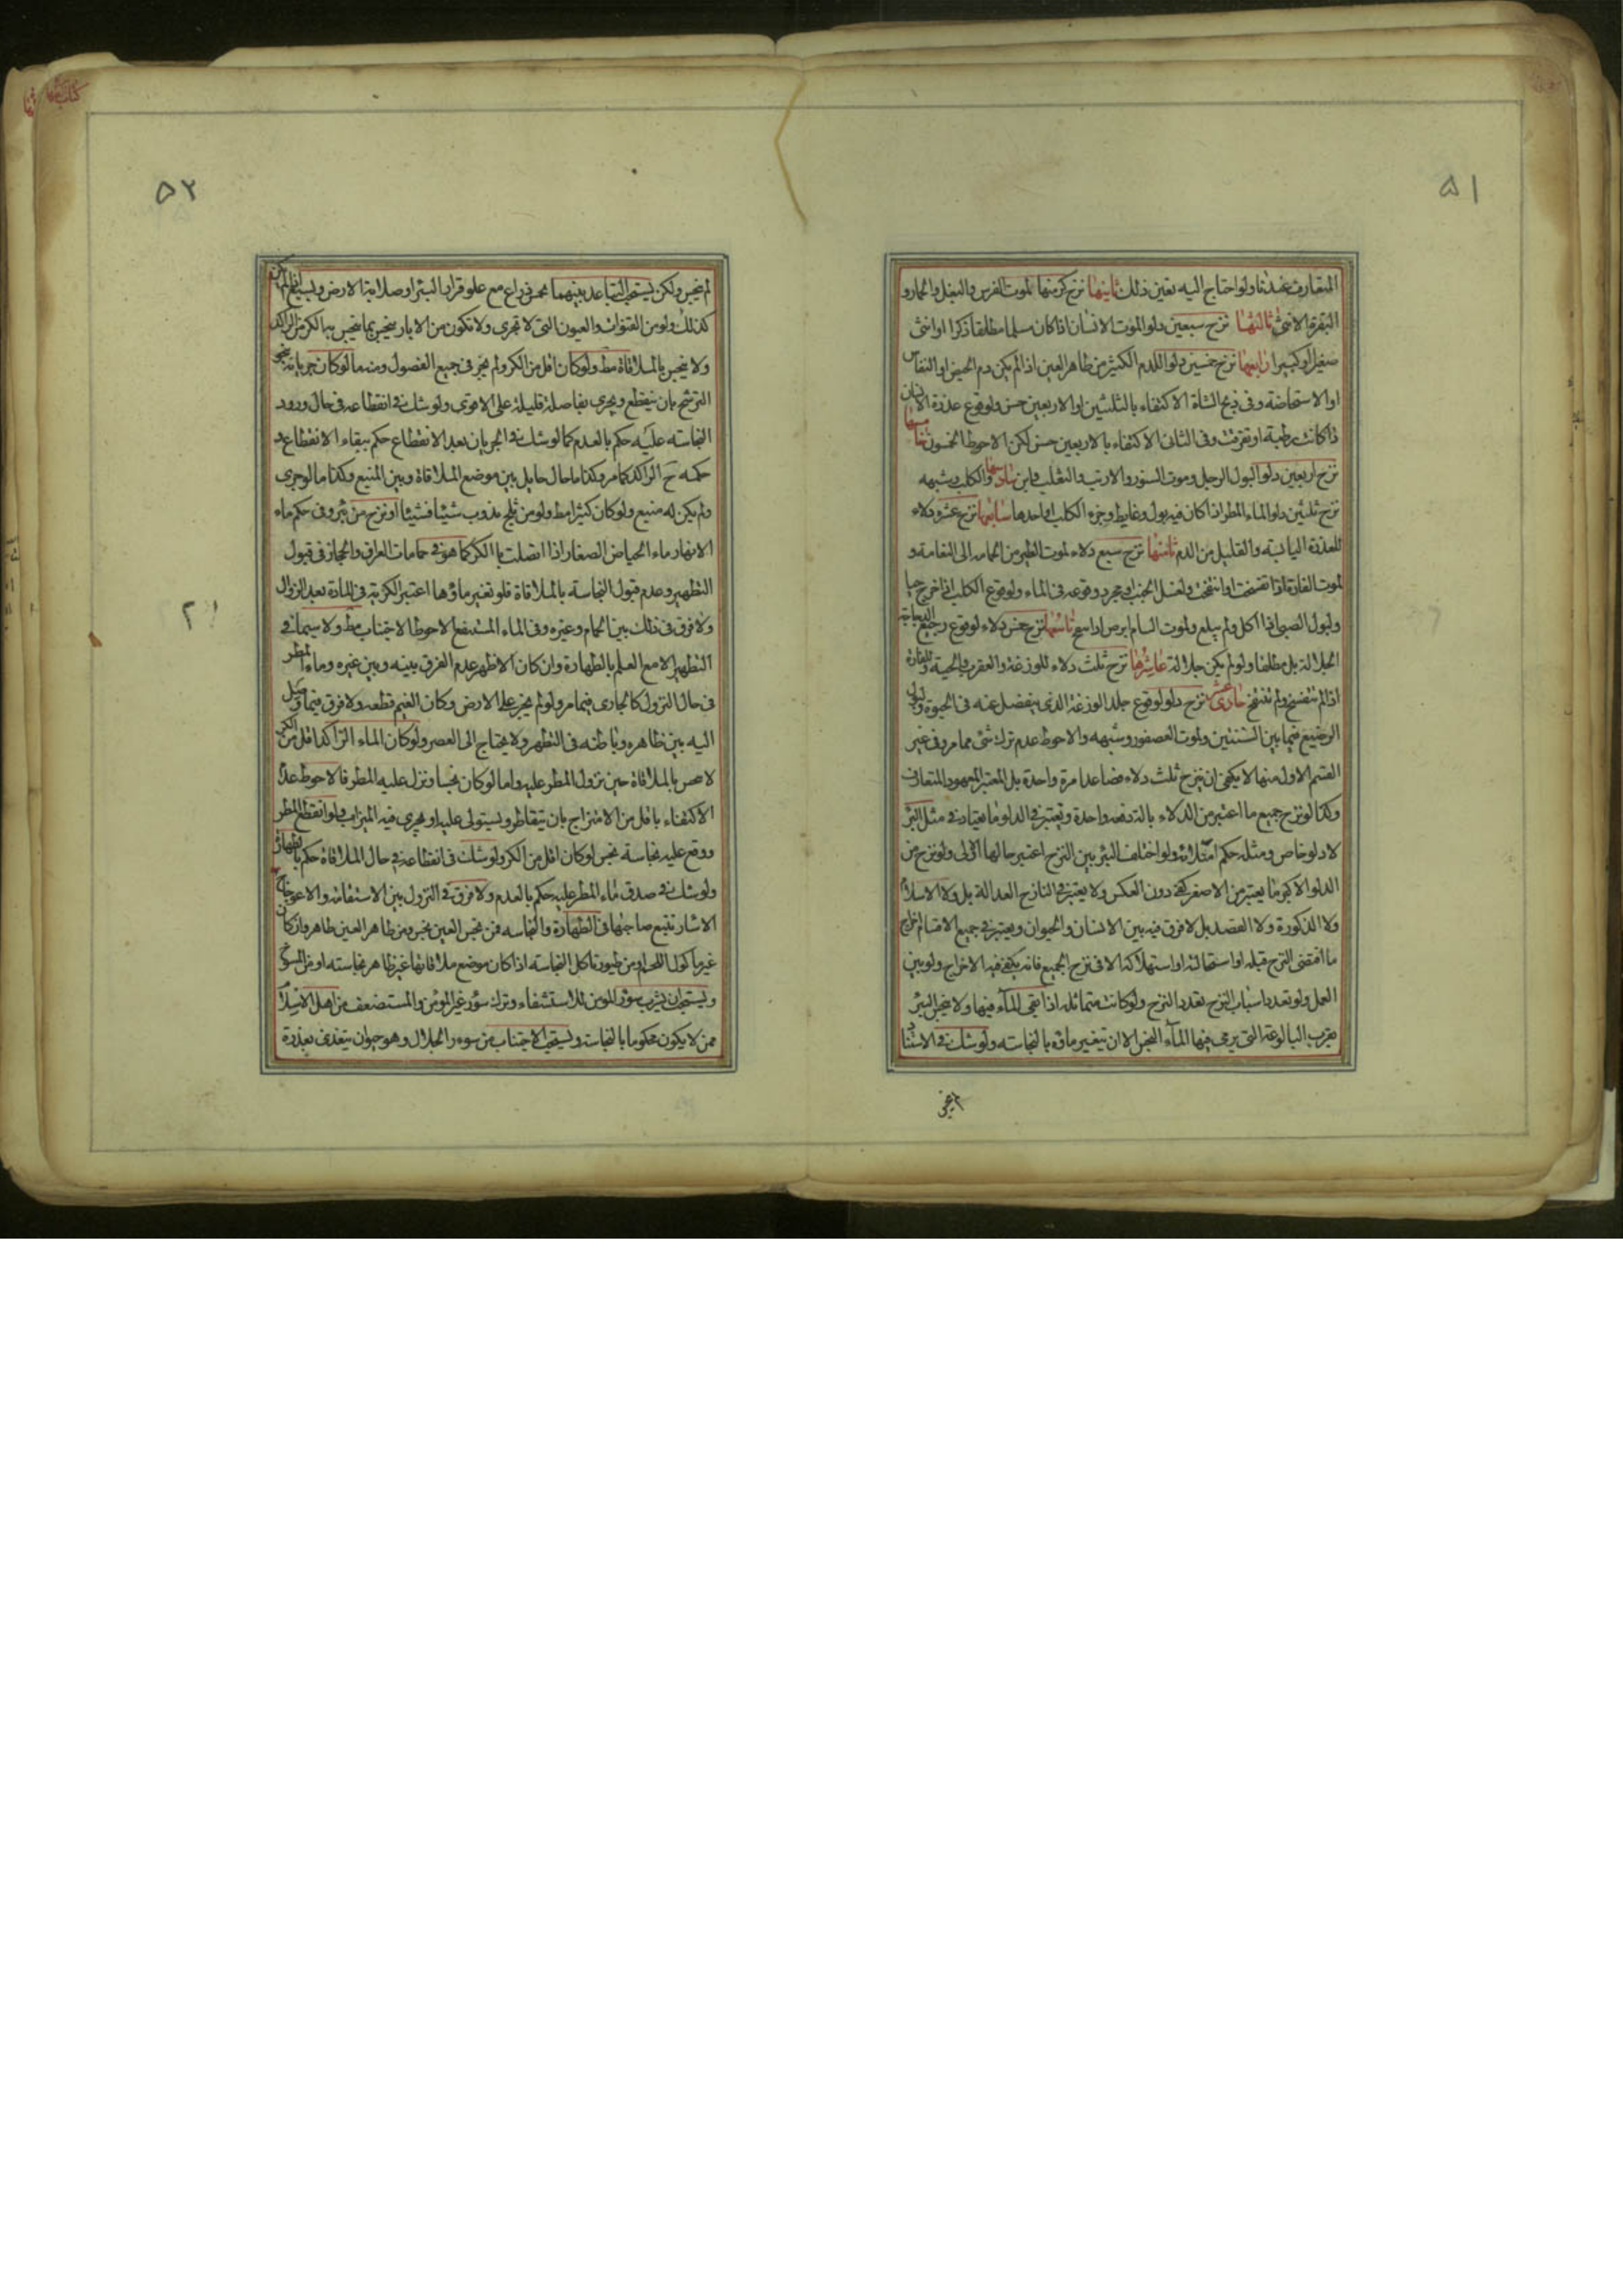 ۵۱
المتعارف عندنا ولو احتاج اليه تعين ذلك ثانيها نزح كر منها لموت الفرس والبغل والحمار و
البقرة الانثى ثالثها نزح سبعين دلوا لموت الانسان اذا كان مسلما مطلقا ذكرا او انثى
صغيرا او كبيرا رابعها نزح خمسين دلوا للدم الكثير من ظاهر العين اذا لم يكن دم الحيض او النفاس
او الاستحاضة وفى ذبح الشاة الاكتفاء بالثلثين او الاربعين حسن ولوقوع عذرة الانسان
اذا كانت رطبة او تفرقت وفى الثانى الاكتفاء بالاربعين حسن لكن الاحوط الخمسون خامسها
نزح اربعين دلوا لبول الرجل وموت السنور والارنب والثعلب والكلب وشبهه
نزح ثلثين دلوا لماء المطر اذا كان فيه بول وغايط وخرء الكلب او احدها سابعها نزح عشر دلاء
للعذرة اليابسة والقليل من الدم ثامنها نزح سبع دلاء لموت الطير من الحمامه الى النعامة و
لموت الفارة اذا تفسخت او انتفخت ولغسل الجنب او مجرد وقوعه فى الماء ولوقوع الكلب اذا خرج حيا
ولبول الصبى اذا اكل ولم يبلغ ولموت السام ابرص اذا تفسخ تاسعها نزح خمس دلاء لوقوع رجيع الدجاجة
الجلالة بل مطلقا ولو لم يكن جلالة عاشرها نزح ثلث دلاء للوزغة والعقرب والحية وللفارة
اذا لم تتفسخ ولم تنتفخ حادى عشر نزح دلو لوقوع جلد الوزغة الذى ينفصل عنه فى الحيوة ولبول
الرضيع فيما بين السنتين ولموت العصفور وشبهه والاحوط عدم ترك شئ مما مر وفى غير
القسم الاول منها لا يكفى ان ينزح ثلث دلاء فصاعدا مرة واحدة بل المعتبر المعهود المتعارف
وكذا لو نزح جميع ما اعتبر من الدلاء بالة دفعه واحدة ويعتبر فى الدلو ما يعتاد فى مثل البئر
لا دلو خاص ومثله حكم امثلاءه ولو اختلف البئر بين النزح اعتبر حالها الاولى ولو نزح من
الدلو الاكبر ما يعتبر من الاصغر كفى دون العكس ولا يعتبر فى النازح العدالة بل ولا الاسلام
ولا الذكورة ولا القصد بل لا فرق فيه بين الانسان والحيوان ويعتبر فى جميع الاقسام اخراج
ما اقتضى النزح قبله او استحالته او استهلاكه الا فى نزح الجميع فانه يكفى فيه الاخراج ولو بين
العمل ولو تعدد اسباب النزح تعدد النزح ولو كانت متماثله اذا بقى للماء فيها ولا ينجس البئر
بقرب البالوعة التى يرمى فيها الماء النجس الا ان يتغير ماؤه بالنجاسته ولو شك فى الاستناد
۵۲
لم ينجس ولكن يستحب التباعد بينهما بخمس ذراع مع علو قرار البئر او صلابة الارض وبسبع ان لم يكن
كذلك ولو من القنوات والعيون التى لا تجرى ولا تكون من الابار ينجس بما ينجس به الكر من الراكد
ولا ينجس بالملاقاة مط ولو كان اقل من الكر ولم يجر فى جميع الفصول ومنه ما لو كان جريانه بنحو
الترشح بان ينقطع ويجرى بفاصلة قليلة على الاقوى ولو شك فى انقطاعه فى حال ورود
النجاسته عليه حكم بالعدم كما لو شك فى الجريان بعد الانقطاع حكم ببقاء الانقطاع و
حكمه ح الراكد كما مر وكذا ما حال حايل بين موضع الملاقاة وبين المنبع وكذا ما لو جرى
ولم يكن له منبع ولو كان كثيرا مط ولو من ثلج يذوب شيئا فشيئا او نزح من بئر وفى حكم ماء
الانهار ماء الحياض الصغار اذا اتصلت بالكر كما هو فى حمامات العراق والحجاز فى قبول
التطهير وعدم قبول النجاسة بالملاقاة فلو تغير ماؤها اعتبر الكرية فى المادة بعد الزوال
ولا فرق فى ذلك بين الحمام وغيره وفى الماء المستنقع الاحوط الاجتناب مط ولا سيما فى
التطهير الا مع العلم بالطهارة وان كان الاظهر عدم الفرق بينه وبين غيره وماء المطر
فى حال النزول كالجارى فيما مر ولو لم يجر على الارض وكان الغيم قطعه ولا فرق فيما وصل
اليه بين ظاهره وباطنه فى التطهر ولا يحتاج الى العصر ولو كان الماء الراكد اقل من الكر
لا ينجس بالملاقاة حين نزول المطر عليه واما لو كان نجسا ونزل عليه المطر فالاحوط عدم
الاكتفاء باقل من الامتزاج بان يتقاطر ويستولى عليه او يجرى فيه الميزاب ولو انقطع المطر
ووقع عليه نجاسة نجس لو كان اقل من الكر ولو شك فى انقطاعه فى حال الملاقاة حكم بالطهارة
ولو شك فى صدق ماء المطر عليه حكم بالعدم ولا فرق فى النزول بين الاستقامة والاعوجاج
الاسئار تتبع صاحبها فى الطهارة والنجاسه فمن نجس العين نجس ومن طاهر العين طاهر وان كان
غير ماكول اللحم او من طيور تاكل النجاسته اذا كان موضع ملاقاتها غير ظاهر نجاسته او من المسوخ
ويستحب ان يشرب سؤر المومن للاستشفاء وترك سؤر غير المؤمن والمستضعف من اهل الاسلام
ممن لا يكون محكوما بالنجاست ويستحب الاجتناب من سوء ر الجلال وهو حيوان يتغذى بعذرة